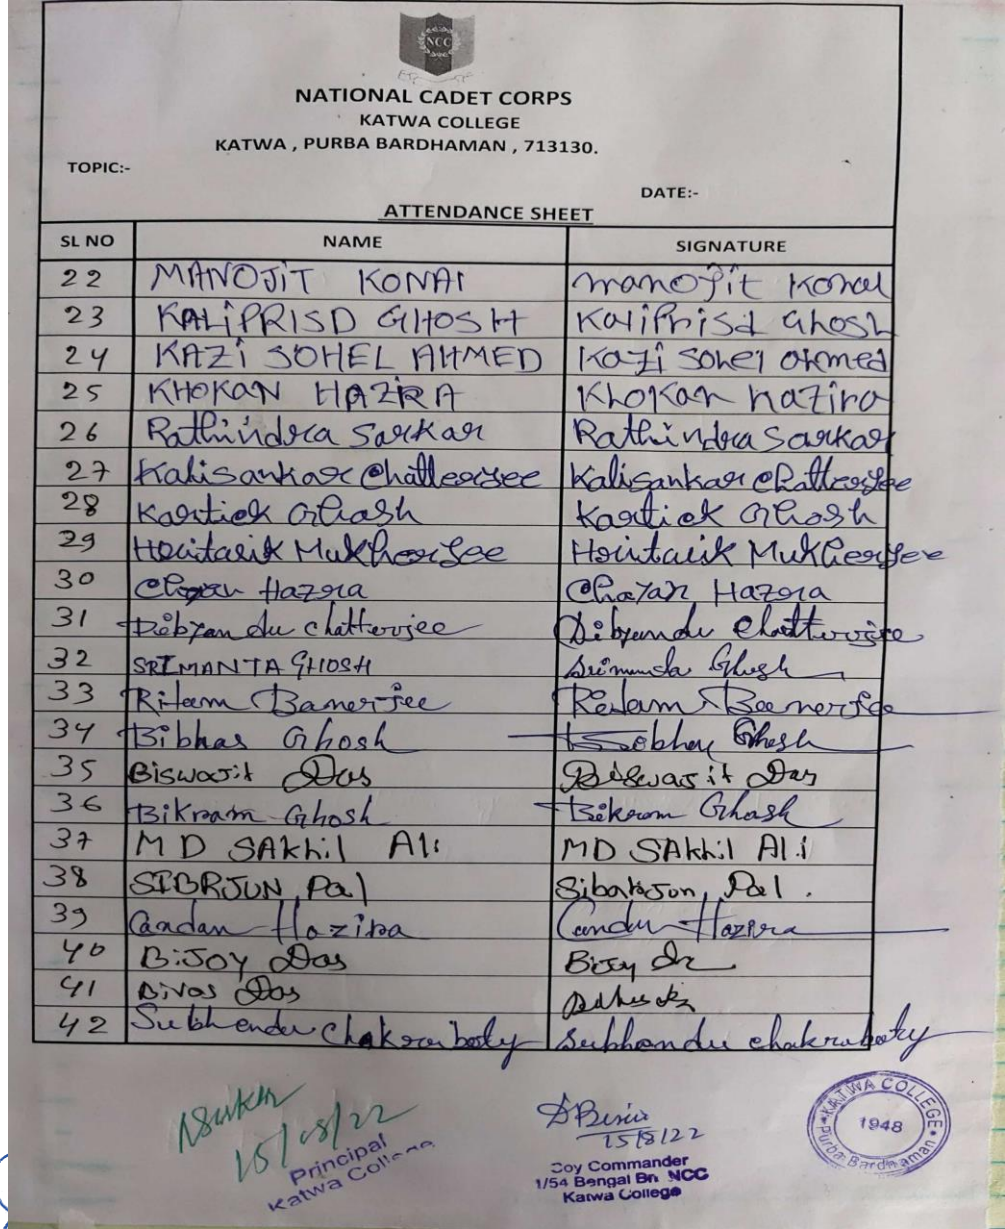 NCC
NATIONAL CADET CORPS
KATWA COLLEGE
KATWA , PURBA BARDHAMAN , 713130.
TOPIC:-
DATE:-
ATTENDANCE SHEET
SL NO NAME SIGNATURE
22 MANOJIT KONAI manojit Konai
23 KALIPRISD GHOSH Kaliprisd Ghosh
24 KAZI SOHEL AHMED Kazi Sohel Ahmed
25 KHOKAN HAZIRA Khokan hazira
26 Rathindra Sarkar Rathindra Sarkar
27 Kalisankar Chatterjee Kalisankar Chatterjee
28 Kartick Ghosh Kartick Ghosh
29 Mukherjee Mukherjee
30 Chayan Hazra Chayan Hazra
31 Dibyandu Chatterjee Dibyendu Chatterjee
32 SRIMANTA GHOSH Ghosh
33 Ritam Banerjee Ritam Banerjee
34 Bibhas Ghosh Bibhas Ghosh
35 Biswajit Das Biswajit Das
36 Bikram Ghosh Bikram Ghosh
37 MD SAkhil Ali MD SAkhil Ali
38 SIBRJUN Pal Pal.
39 Candan Hazira Hazira
40 BiJOY Das Bijoy
41 Bivas Das
42 Subhendu Chakraboty Subhendu chakraboty
15/08/22
Principal
Katwa College
15/8/22
Coy Commander
1/54 Bengal Bn NCC
Katwa College
KATWA COLLEGE
1948
Purba Bardhaman